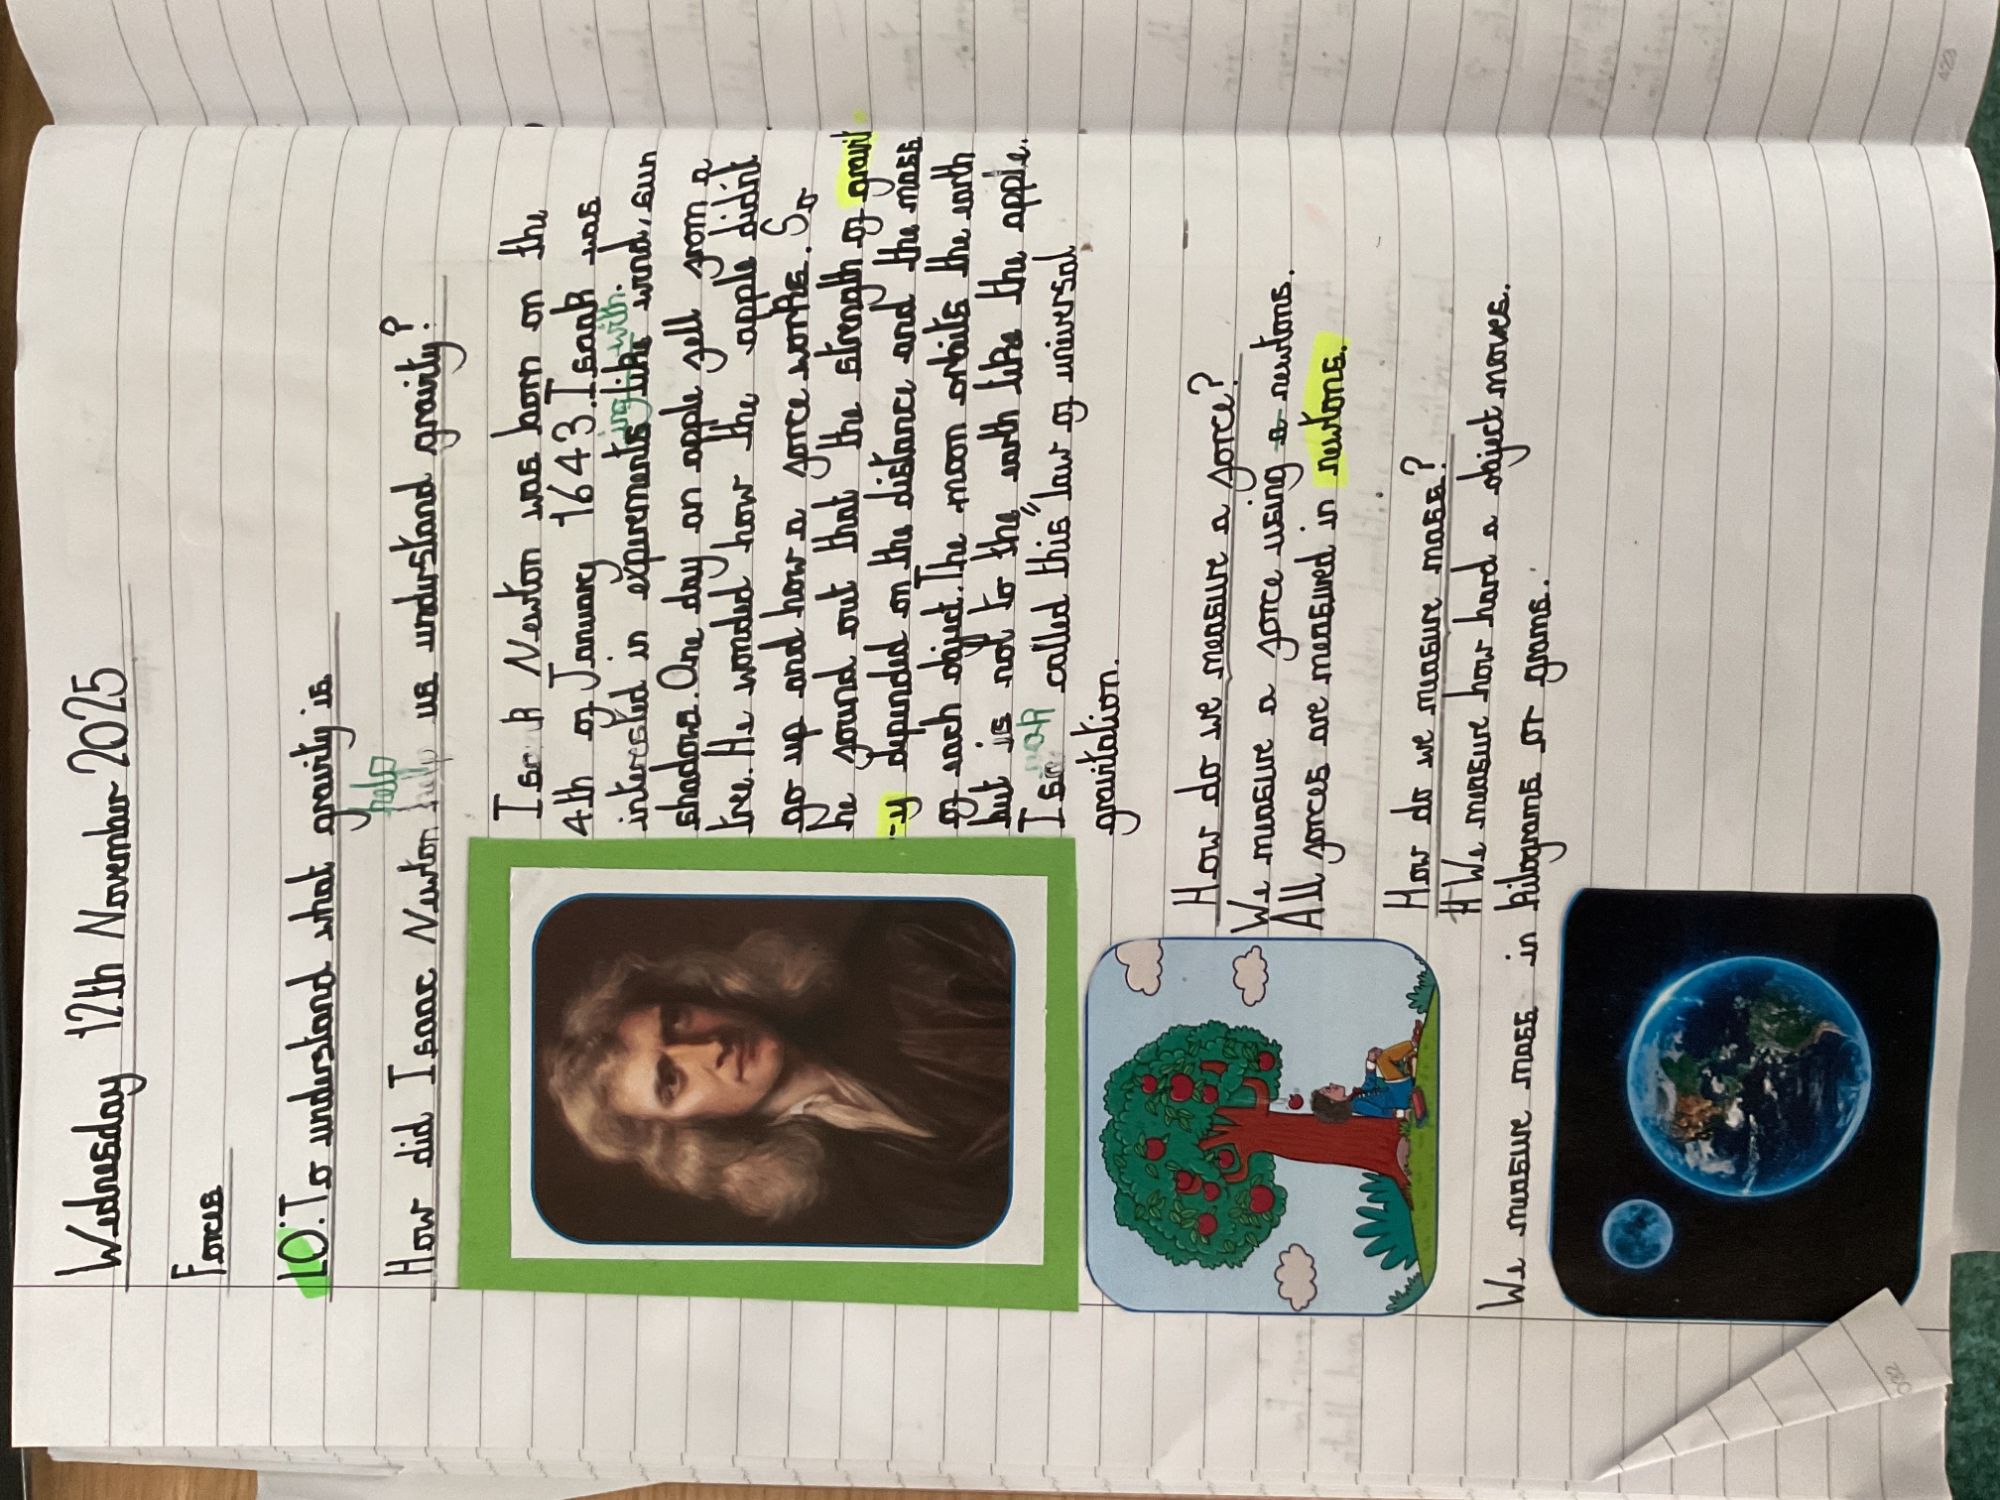 Wednesday 12th November 2025
Forces
LO: To understand what gravity is
help
How did Isaac Newton help us understand gravity?
Isaak Newton was born on the
4th of January 1643. Isaak was
ing with.
interested in experiments like wind, sun
shadows. One day an apple fell from a
tree. He wonded how the apple didint
go up and how a force works. So
he found out that the strength of gravit
-y depended on the distance and the mass
of each object. The moon orbits the earth
but is not to the earth like the apple.
Isaak called this "law of universal
gravitation.
How do we measure a force?
We measure a force using a newtons.
All forces are measured in newtons.
How do we measure mass?
H We measure how hard a object moves.
We measure mass in kilograms or grams.